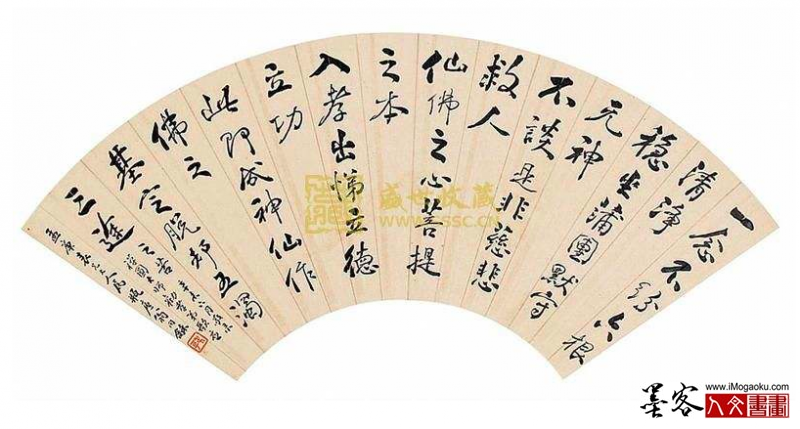 一念不紛六根
清淨
穩坐蒲團默守
元神
不談是非慈悲
救人
仙佛之心菩提
之本
入孝出悌立德
立功
此即成神仙作
佛之
基定脫却五濁
三途
之苦
盛世收藏
墨客
www.iMogaoku.com
人文書畫